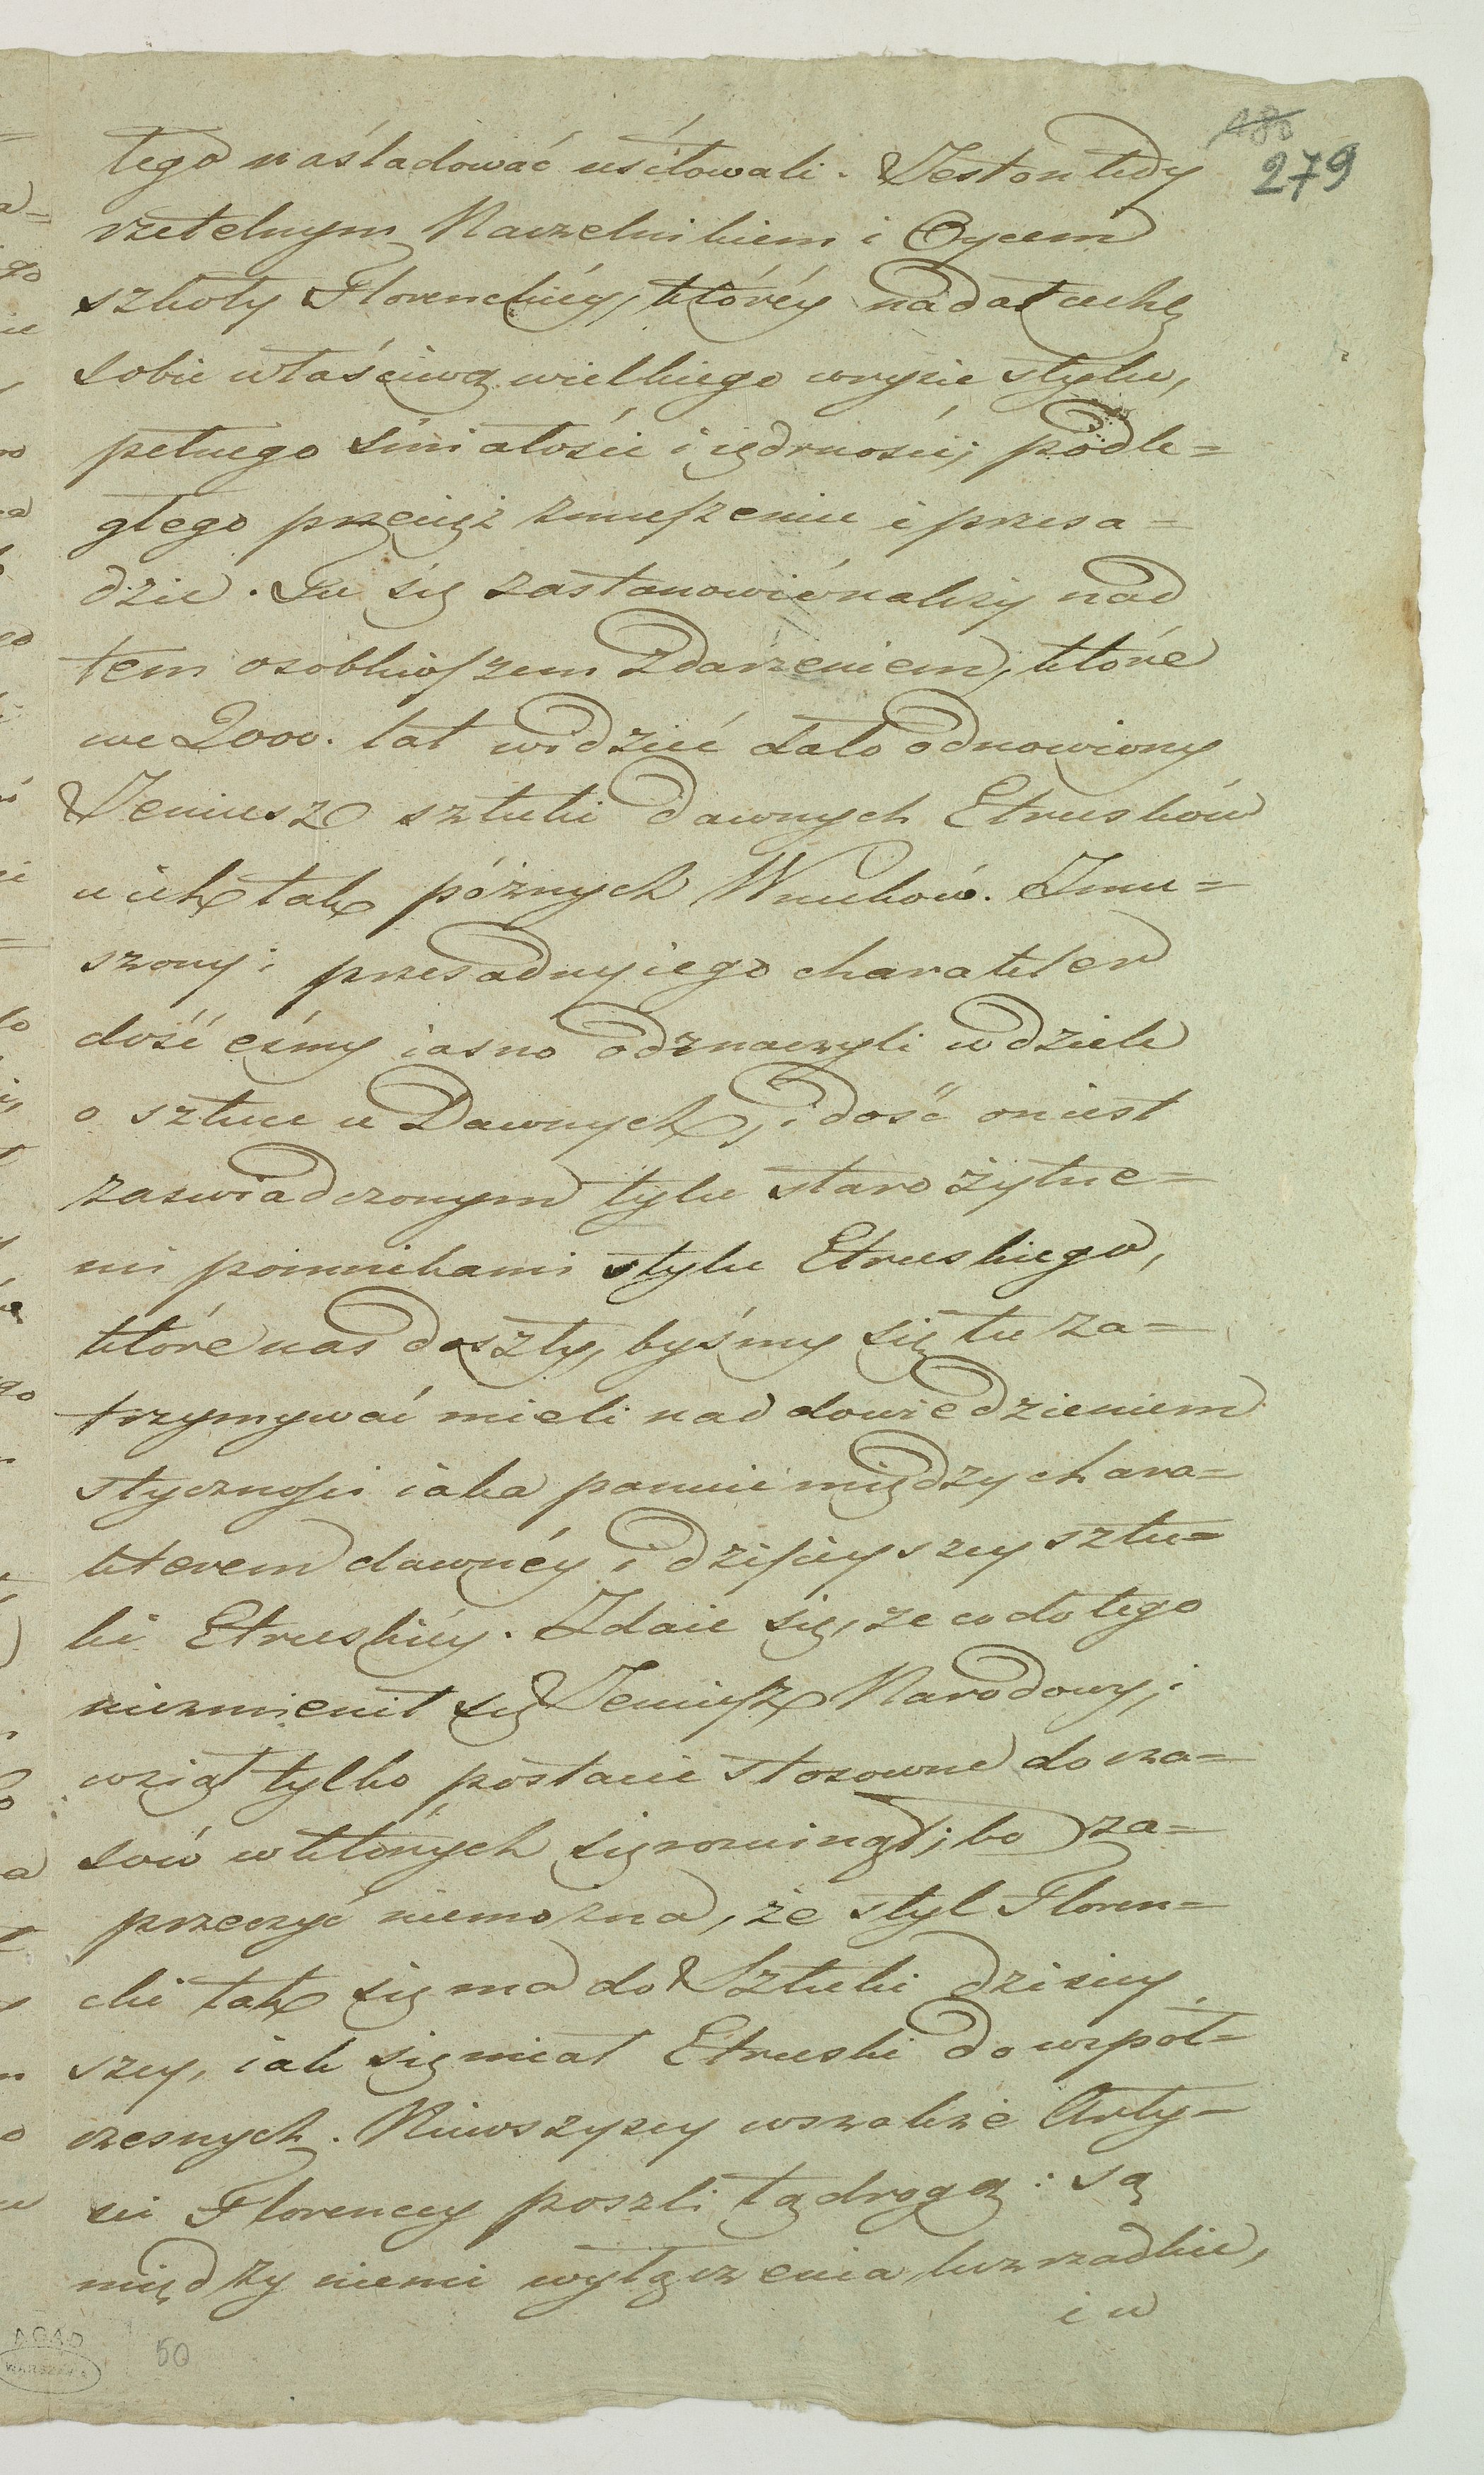 186
279
tego naśladować usiłowali. Jest on tedy
rzetelnym Naczelnikiem i Oycem
szkoły Florenckiéy, któréy nadał cechę
sobie właściwą wielkiego wrysie stylu,
pełnego śmiałości i iędrności; podle=
głego przecięż zmuszeniu i przesa=
dzie. Tu się zastanowić należy nad
tem osobliwszem zdarzeniem, które
we 2000. lat widzieć dało odnowiony
Jeniusz sztuki dawnych Etrusków
u ich tak późnych Wnuków. Zmu=
szony i przesadny iego charakter
dość eśmy iasno odznaczyli w dziele
o sztuce u Dawnych, i dość on iest
zaswiadczonym tylu starożytne=
mi pomnikami stylu Etruskiego,
które nas doszły, byśmy się tu za=
trzymywać mieli nad dowiedzieniem
styczności iaka panuie między chara=
kterem dawnéy i dzisieyszey sztu=
ki Etruskiéy. Zdaie się, ze co do tego
niezmienił się Jeniusz Narodowy, i
wziął tylko postacie stosowne do cza=
sów w których się rozwinął; bo za=
przeczyć niemożna, że styl Floren=
cki tak się ma do Sztuki dzisiey
szey, iak się miał Etruski do wspól=
czesnych. Niewszyscy wszakże Arty=
ści Florenccy poszli tą drogą: są
między niemi wyłączenia lecz rzadkie,
i w
AGAD
WARSZAWA
50